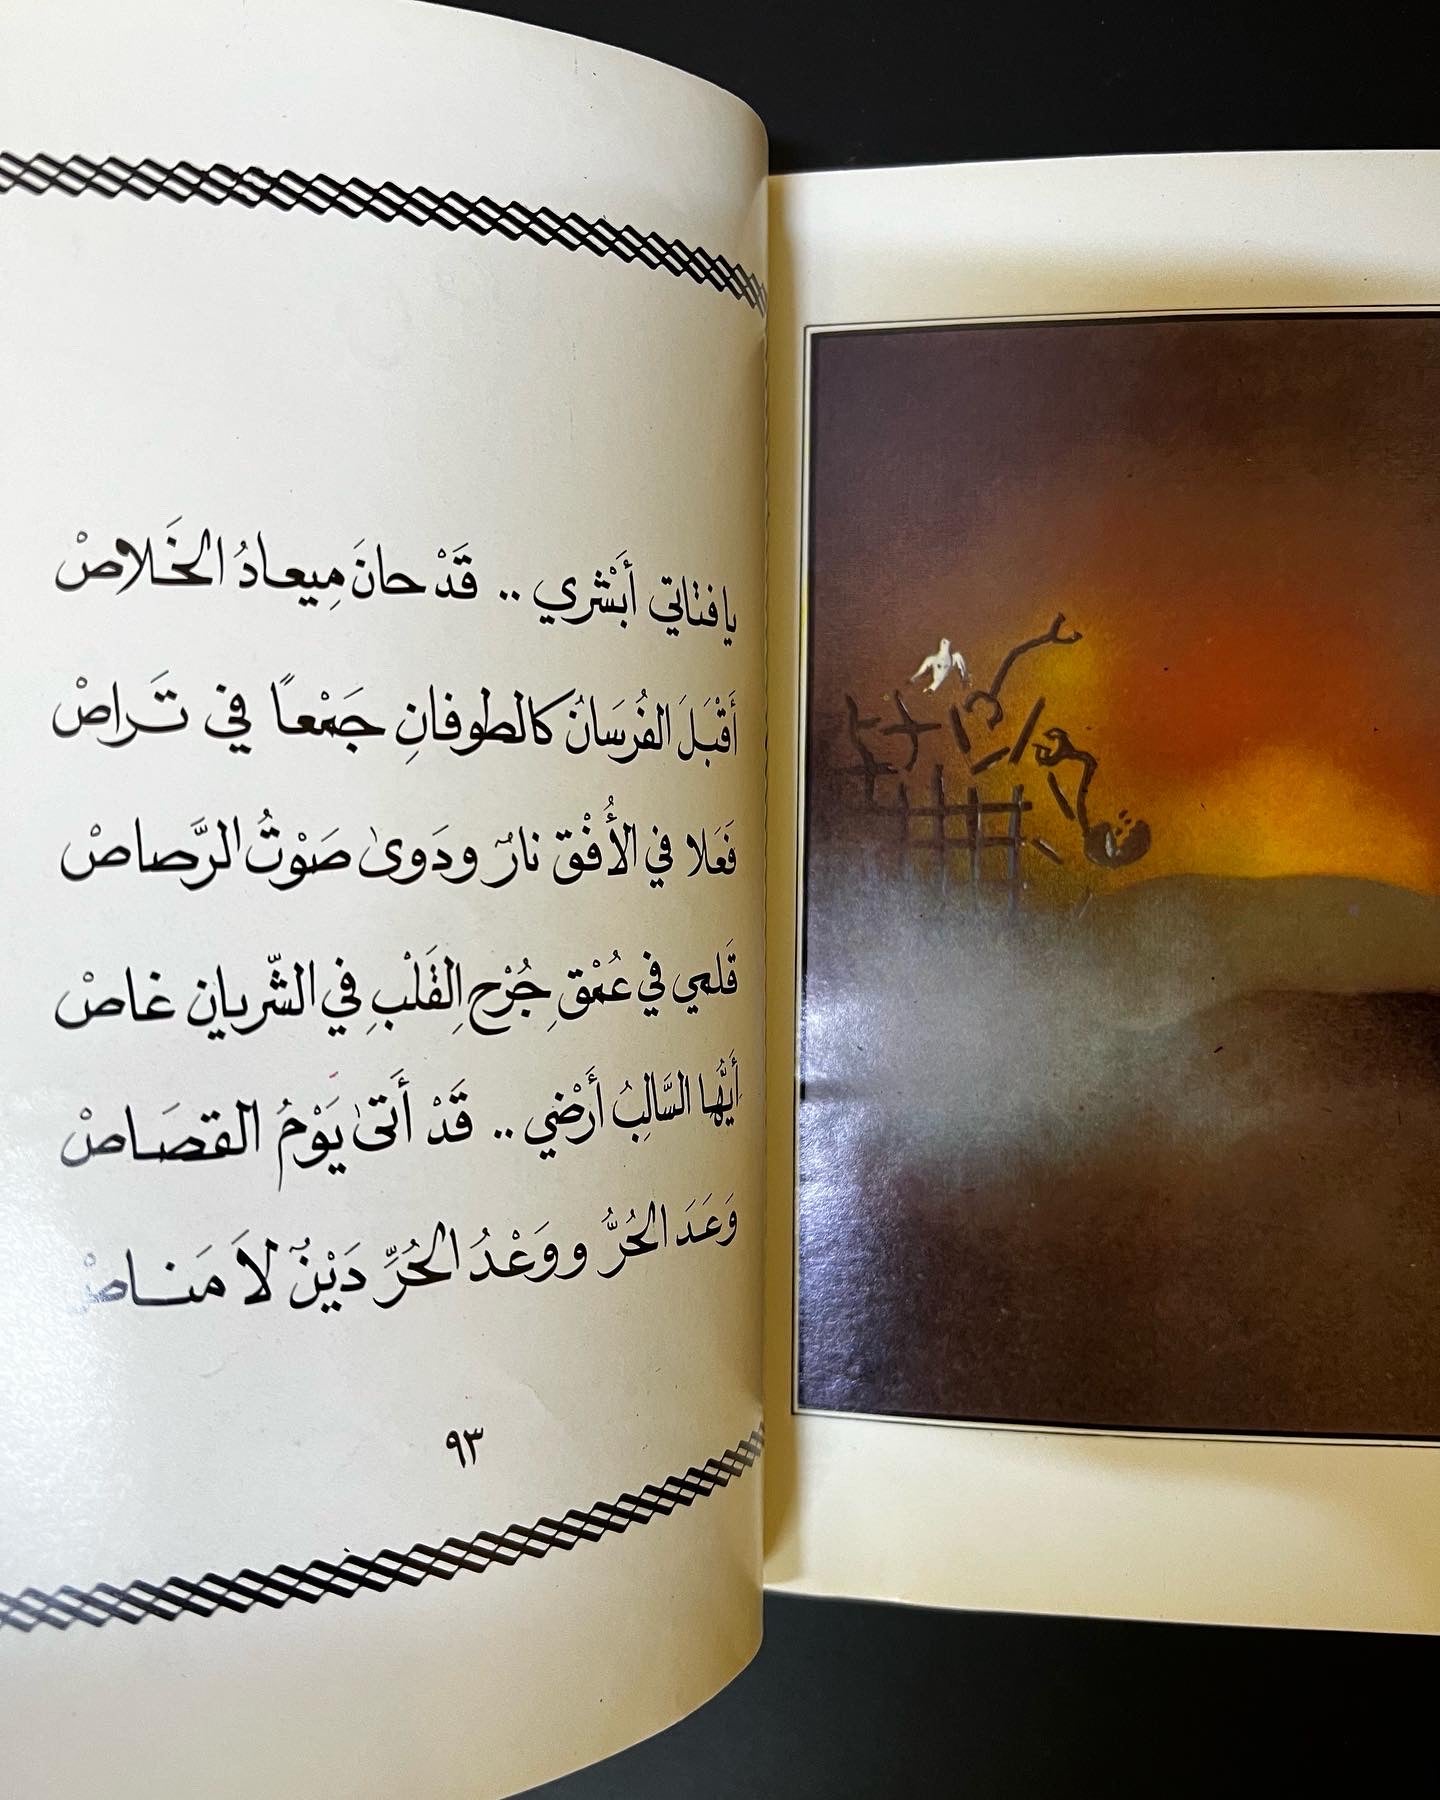 يا فتاتي أَبْشري .. قَدْ حانَ مِيعادُ الخَلاصْ
أَقْبَلَ الفُرسَانُ كالطوفانِ جَمْعاً في تَراصْ
فَعَلا في الأُفْق نارٌ ودَوىٰ صَوْتُ الرَّصاصْ
قَلمي في عُمْقِ جُرْحِ القَلْبِ في الشّريانِ غاصْ
أَيُّها السَّالِبُ أَرْضي .. قَدْ أَتىٰ يَوْمُ القصَاصْ
وَعَدَ الحُرُّ ووَعْدُ الحُرِّ دَيْنٌ لاَ مَناصْ
٩٣